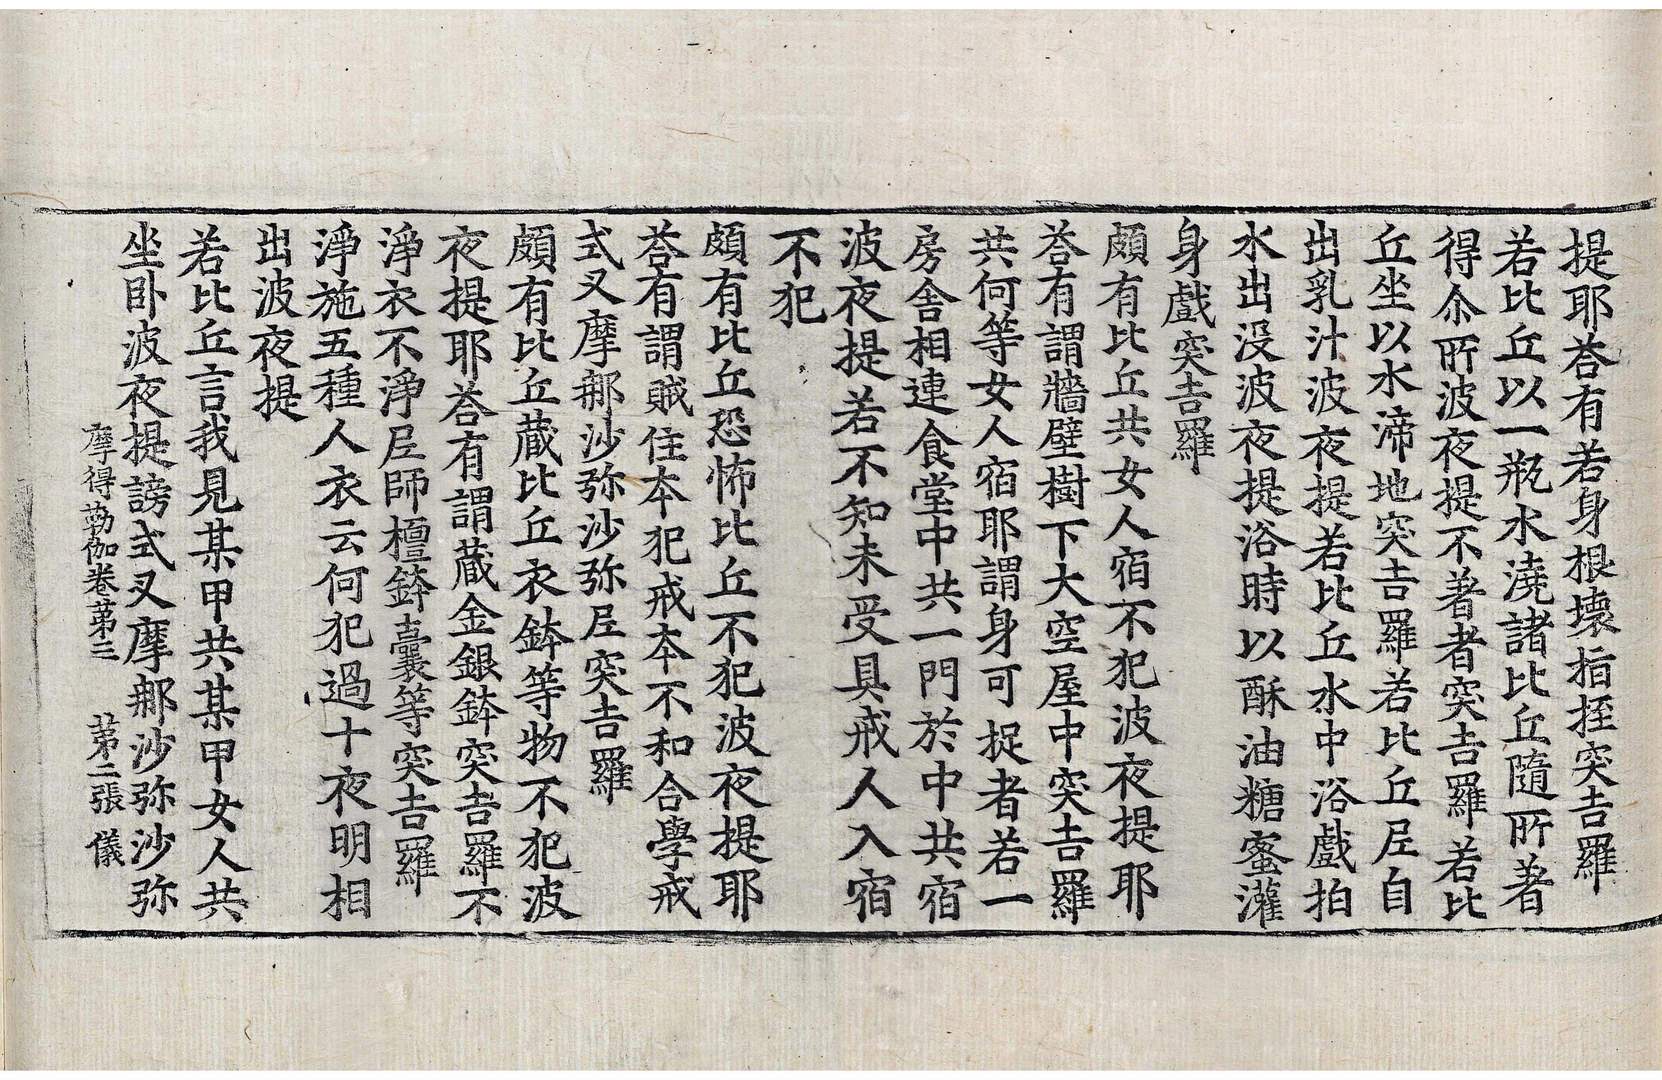 提耶荅有若身根壊指挃突吉羅
若比丘以一瓶水澆諸比丘隨所著
得尒所波夜提不著者突吉羅若比
丘坐以水渧地突吉羅若比丘𡰱自
出乳汁波夜提若比丘水中浴戲拍
水出没波夜提浴時以酥油糖蜜灌
身戲突吉羅
頗有比丘共女人宿不犯波夜提耶
荅有謂牆壁樹下大空屋中突吉羅
共何等女人宿耶謂身可捉者若一
房舍相連食堂中共一門於中共宿
波夜提若不知未受具戒人入宿
不犯
頗有比丘恐怖比丘不犯波夜提耶
荅有謂賊住本犯戒本不和合學戒
式叉摩那沙弥沙弥𡰱突吉羅
頗有比丘蔵比丘衣鉢等物不犯波
夜提耶荅有謂蔵金銀鉢突吉羅不
淨衣不淨𡰱師檀鉢囊等突吉羅
淨施五種人衣云何犯過十夜明相
出波夜提
若比丘言我見某甲共某甲女人共
坐卧波夜提謗式叉摩那沙弥沙弥
摩得勒伽卷第三 第二張 儀